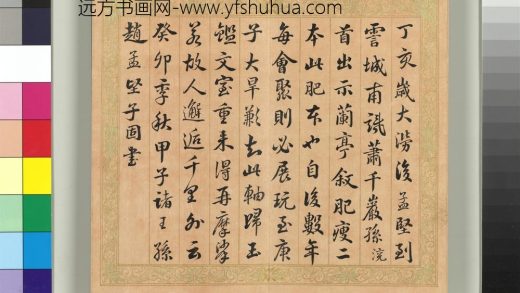 远方书画网-www.yfshuhua.com
丁亥歲大澇後孟堅到
霅城甫識蕭千巖孫浣
首出示蘭亭敘肥瘦二
本此肥本也自後數年
每會聚則必展玩至庚
子大旱歉去此軸歸玉
鑑文室重来得再摩挲
若故人邂逅千里外云
癸卯季秋甲子諸王孫
趙孟堅子固書